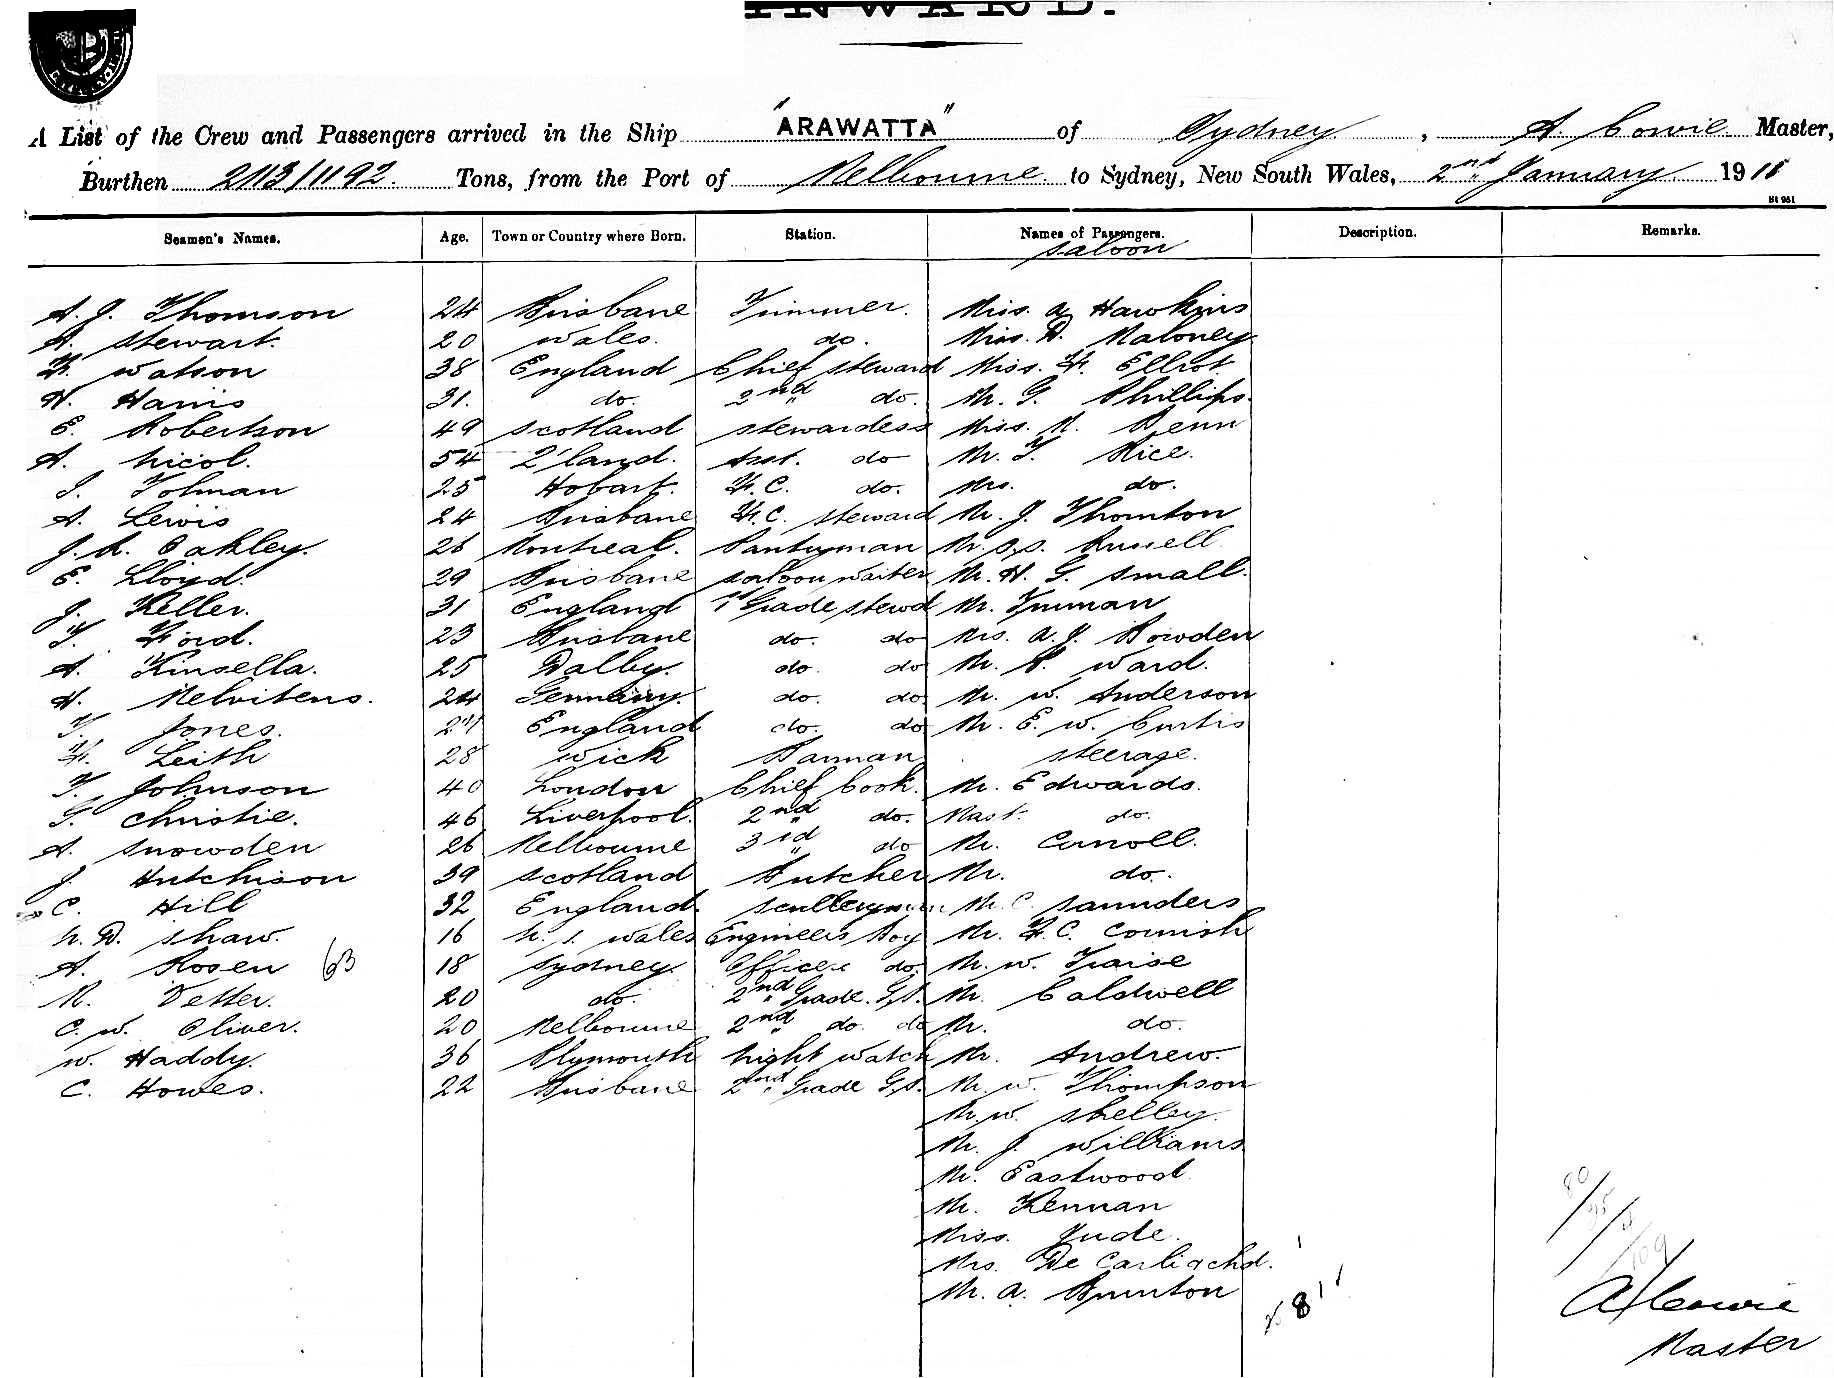 INWARD.
A List of the Crew and Passengers arrived in the Ship "ARAWATTA" of Sydney, A. Cowie Master,
Burthen 2113/1192 Tons, from the Port of Melbourne to Sydney, New South Wales, 2nd January 1911
St 961
Seamen's Names. Age. Town or Country where Born. Station. Names of Passengers. Description. Remarks.
saloon
A. J. Thomson 24 Brisbane Trimmer. Miss. A Hawkins
A. Stewart. 20 Wales. do. Miss. D. Maloney
F. Watson 38 England Chief Steward Miss. F. Elliot
H. Harris 31. do. 2nd do. Mr. G. Phillips.
E. Robertson 49 Scotland Stewardess Miss. M. Benn
A. Nicol. 54 Q'land. Asst. do Mr. T. Rice.
I. Tolman 25 Hobart. F.C. do. Mrs. do.
A. Lewis 24 Brisbane F.C. Steward Mr. J. Thornton
J. A. Oakley. 26 Montreal. Pantryman Mr. S. Russell
E. Lloyd. 29 Brisbane Saloon Waiter Mr. H. G. Small.
J. Keller. 31 England 1st Grade Stewd Mr. Inman
T. Ford. 23 Brisbane do. do Mrs. A. J. Bowden
A. Kinsella. 25 Dalby. do. do Mr. P. Ward.
H. Melvitens. 24 Germany. do. do. Mr. W. Anderson
T. Jones. 27 England do. do Mr. E. W. Curtis
F. Leith 28 Wick Barman steerage.
T. Johnson 40 London Chief Cook. Mr. Edwards.
G. Christie. 46 Liverpool. 2nd do. Mast. do.
A. Snowden 26 Melbourne 3rd do Mr. Carroll.
J. Hutchison 39 Scotland Butcher Mr. do.
C. Hill 32 England Sculleryman Mr. C. Saunders
N. D. Shaw. 16 N. S. Wales Engineers Boy Mr. F. C. Cornish
A. Rosen 63 18 Sydney. Officers do. Mr. W. Traise
R. Vetter. 20 do. 2nd Grade G.S. Mr. Caldwell
C. W. Oliver. 20 Melbourne 2nd do. do Mr. do.
W. Haddy. 36 Plymouth Night Watch Mr. Andrew.
C. Howes. 22 Brisbane 2nd Grade G.S. Mr. W. Thompson
Mr. W. Shelley.
Mr. J. Williams
Mr. Eastwood
Mr. Kennan
Miss. Jude.
Mrs. De Carli & chd.
Mr. A. Brunton
A Cowie
Master